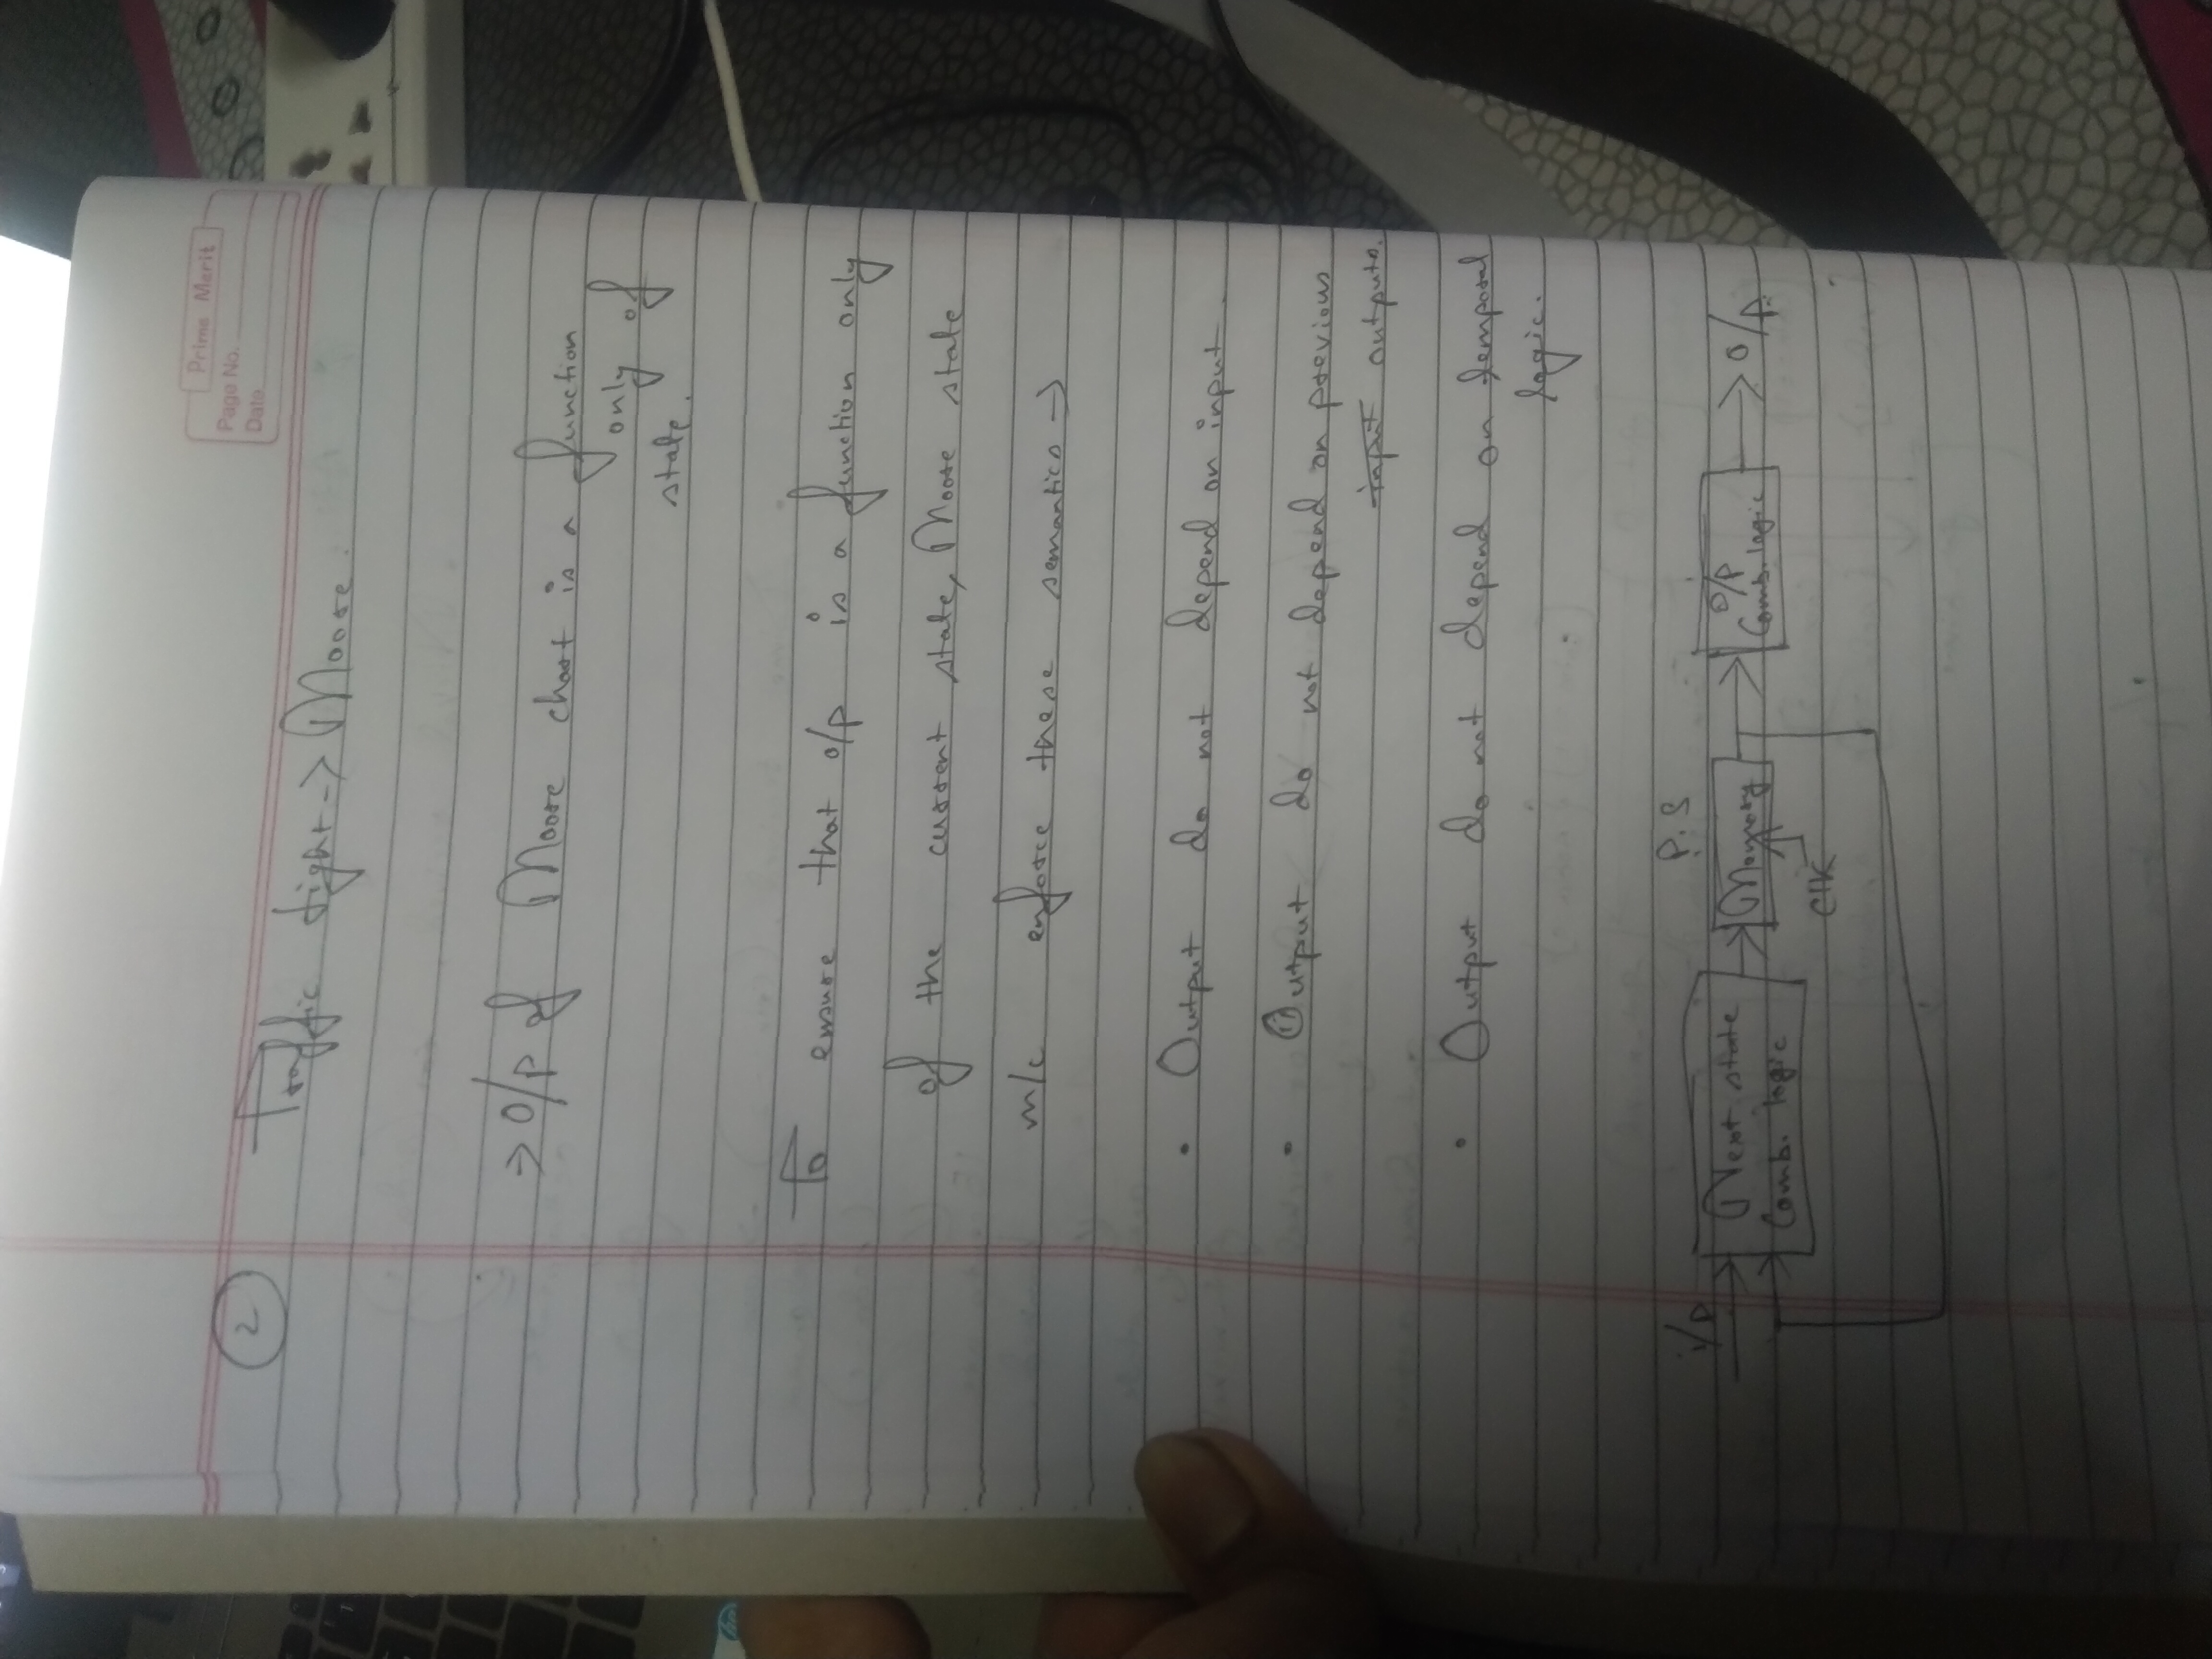 Prime Merit
Page No.
Date
2
Traffic light -> Moore.
-> O/P of Moore chart is a function
only of
state.
To ensure that o/p is a function only
of the current state, Moore state
m/c enforce these semantics ->
• Output do not depend on input.
• Output do not depend on previous
input outputs.
• Output do not depend on temporal
logic.
P.S
i/p Next state Memory O/P O/P
Comb. logic Comb. logic
Clk